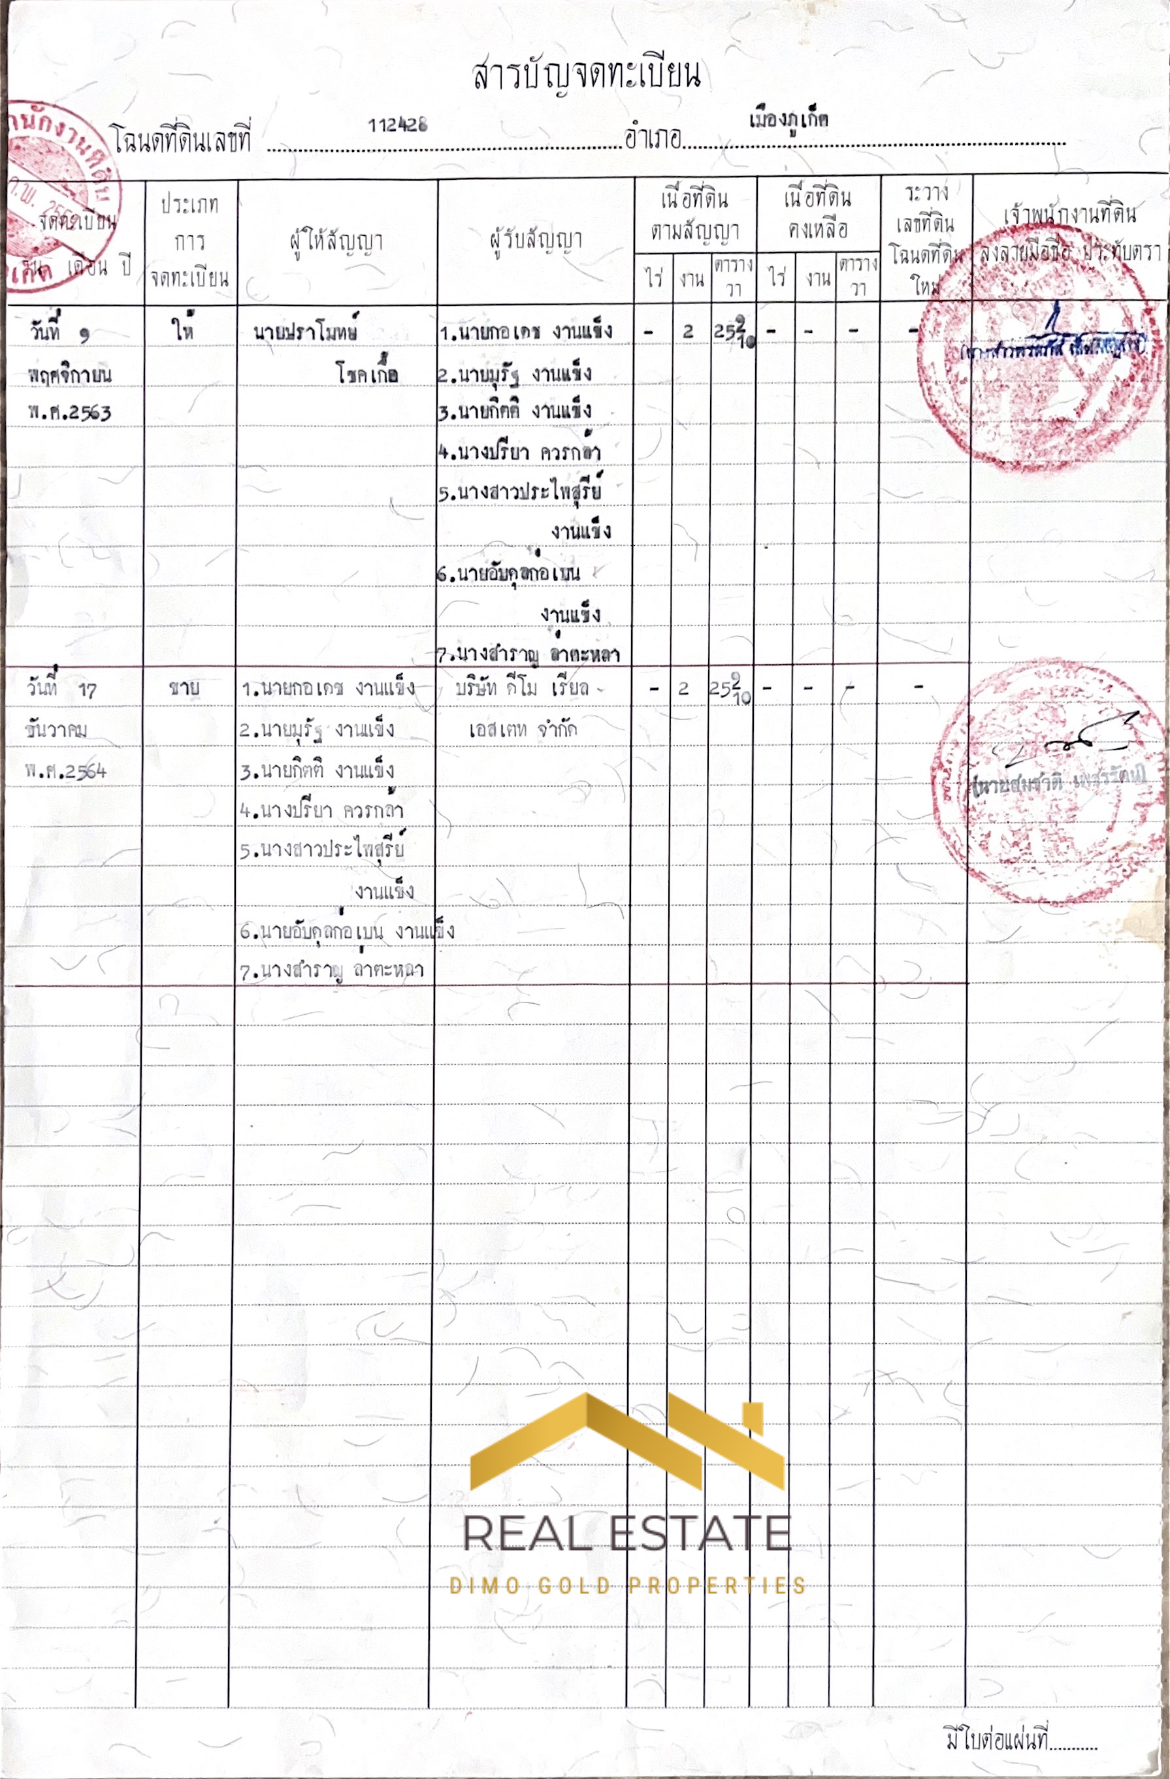 สารบัญจดทะเบียน
โฉนดที่ดินเลขที่ 112428 อำเภอ เมืองภูเก็ต
จดทะเบียน วัน เดือน ปี
ประเภท การ จดทะเบียน
ผู้ให้สัญญา
ผู้รับสัญญา
เนื้อที่ดิน ตามสัญญา
ไร่ งาน ตาราง วา
เนื้อที่ดิน คงเหลือ
ไร่ งาน ตาราง วา
ระวาง เลขที่ดิน โฉนดที่ดิน ใหม่
เจ้าพนักงานที่ดิน ลงลายมือชื่อ ประทับตรา
วันที่ 9 ให้ นายปราโมทย์ 1.นายกอเดช งานแข็ง - 2 25 9/10 - - - -
พฤศจิกายน โชคเกื้อ 2.นายมุรัฐ งานแข็ง
พ.ศ.2563 3.นายกิตติ งานแข็ง
4.นางปรียา ควรกล้า
5.นางสาวประไพสุรีย์
งานแข็ง
6.นายอับดุลก่อเบน
งานแข็ง
7.นางสำราญ ล่าตะหลา
วันที่ 17 ขาย 1.นายกอเดช งานแข็ง บริษัท ดีโม เรียล - 2 25 9/10 - - - -
ธันวาคม 2.นายมุรัฐ งานแข็ง เอสเตท จำกัด
พ.ศ.2564 3.นายกิตติ งานแข็ง
(นายสมชาติ เพชรรัตน์)
4.นางปรียา ควรกล้า
5.นางสาวประไพสุรีย์
งานแข็ง
6.นายอับดุลก่อเบน งานแข็ง
7.นางสำราญ ล่าตะหลา
REAL ESTATE
DIMO GOLD PROPERTIES
มีใบต่อแผ่นที่..........